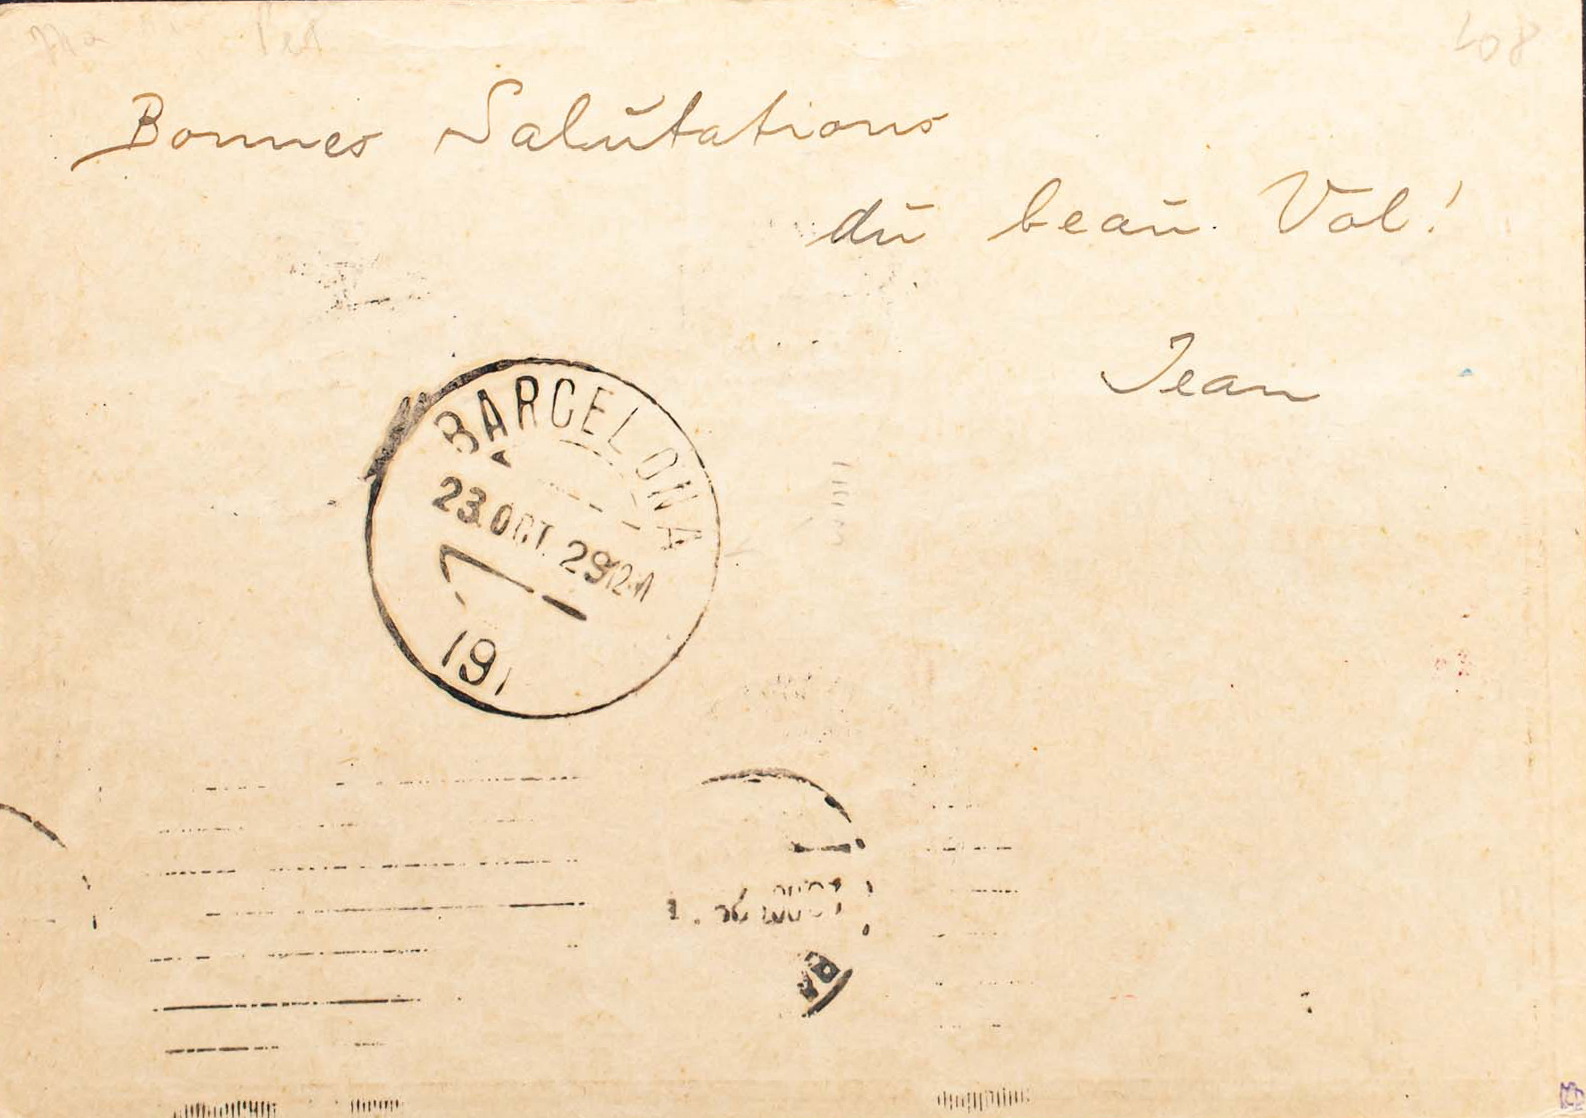 408
Bonnes Salutations
du beau Vol!
Jean
BARCELONA
23.OCT.29 12-M
191